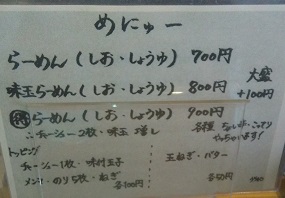 めにゅー
らーめん(しお・しょうゆ) 700円
味玉らーめん(しお・しょうゆ) 800円
大盛
+100円
らーめん(しお・しょうゆ) 900円
∴チャーシュー2枚・味玉 増し
トッピング
チャーシュー1枚・味付玉子
メンマ・のり5枚・ねぎ
各100円
玉ねぎ・バター
各50円